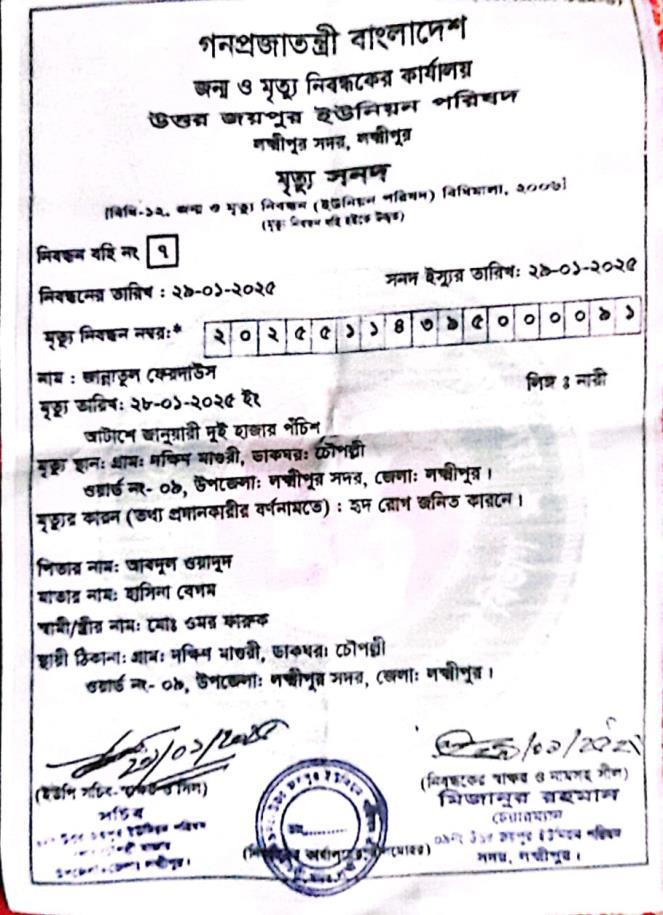 গনপ্রজাতন্ত্রী বাংলাদেশ
জন্ম ও মৃত্যু নিবন্ধকের কার্যালয়
উত্তর জয়পুর ইউনিয়ন পরিষদ
লক্ষ্মীপুর সদর, লক্ষ্মীপুর
মৃত্যু সনদ
[বিধি-১২, জন্ম ও মৃত্যু নিবন্ধন (ইউনিয়ন পরিষদ) বিধিমালা, ২০০৬]
(মৃত্যু নিবন্ধন বহি হইতে উদ্ধৃত)
নিবন্ধন বহি নং ৭
নিবন্ধনের তারিখ : ২৯-০১-২০২৫ সনদ ইস্যুর তারিখ: ২৯-০১-২০২৫
মৃত্যু নিবন্ধন নম্বর:* ২০২৫৫১১৪৩৯৫০০০০৯১
নাম : জান্নাতুল ফেরদাউস লিঙ্গ ঃ নারী
মৃত্যু তারিখ: ২৮-০১-২০২৫ ইং
আটাশে জানুয়ারী দুই হাজার পঁচিশ
মৃত্যু স্থান: গ্রাম: দক্ষিণ মাগুরী, ডাকঘর: চৌপল্লী
ওয়ার্ড নং- ০৯, উপজেলা: লক্ষ্মীপুর সদর, জেলা: লক্ষ্মীপুর।
মৃত্যুর কারন (তথ্য প্রদানকারীর বর্ণনামতে) : হৃদ রোগ জনিত কারনে।
পিতার নাম: আবদুল ওয়াদুদ
মাতার নাম: হাসিনা বেগম
স্বামী/স্ত্রীর নাম: মোঃ ওমর ফারুক
স্থায়ী ঠিকানা: গ্রাম: দক্ষিণ মাগুরী, ডাকঘর: চৌপল্লী
ওয়ার্ড নং- ০৯, উপজেলা: লক্ষ্মীপুর সদর, জেলা: লক্ষ্মীপুর।
২৯/০১/২০২৫
(ইউপি সচিব
সচিব
উত্তর জয়পুর ইউনিয়ন পরিষদ
(নিবন্ধকের স্বাক্ষর ও নামসহ সীল)
মিজানুর রহমান
চেয়ারম্যান
০৯নং উত্তর জয়পুর ইউনিয়ন পরিষদ
সদর, লক্ষ্মীপুর।